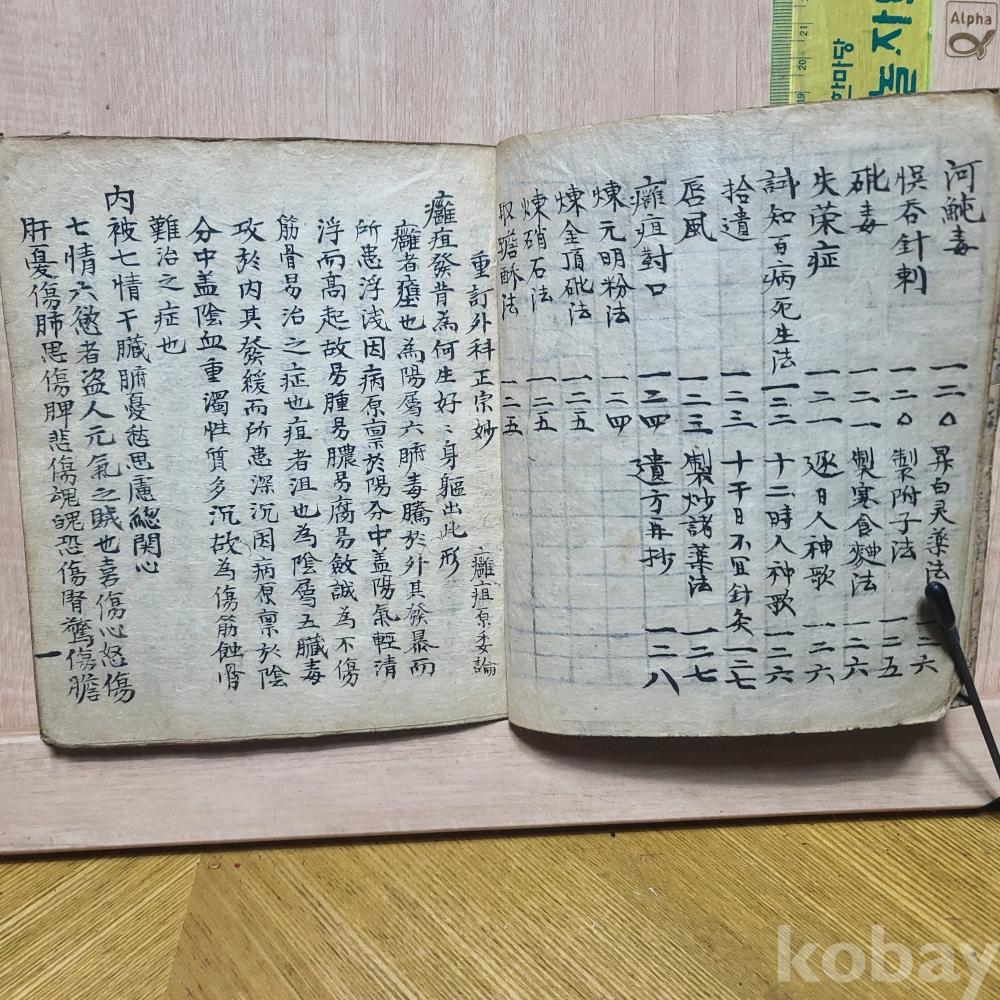 河魨毒 一二〇 昇白灵藥法 一二六
悞吞針刺 一二〇 製附子法 一二五
砒毒 一二一 製寒食麪法 一二六
失荣症 一二一 逐日人神歌 一二六
試知百病死生法 一二二 十二時人神歌 一二六
拾遺 一二三 十干日不宜針灸 一二七
唇風 一二三 製炒諸藥法 一二七
癰疽對口 一二四 遺方再抄 一二八
煉元明粉法 一二四
煉金頂砒法 一二五
煉硝石法 一二五
取蟾酥法 一二五
重訂外科正宗妙 癰疽原委論
癰疽發背為何生好〻身軀出此形
癰者壅也為陽屬六腑毒騰於外其發暴而
所患浮浅因病原禀於陽分中盖陽氣輕清
浮而髙起故易腫易膿易腐易斂誠為不傷
筋骨易治之症也疽者沮也為陰屬五臟毒
攻於内其發緩而所患深沉因病原禀於陰
分中盖陰血重濁性質多沉故為傷筋蝕骨
難治之症也
内被七情干臟腑憂愁思慮緫関心
七情六慾者盗人元氣之賊也喜傷心怒傷
肝憂傷肺思傷脾悲傷魂魄恐傷腎驚傷膽
一
Alpha
눈자
한마당
19
20
21
kobay